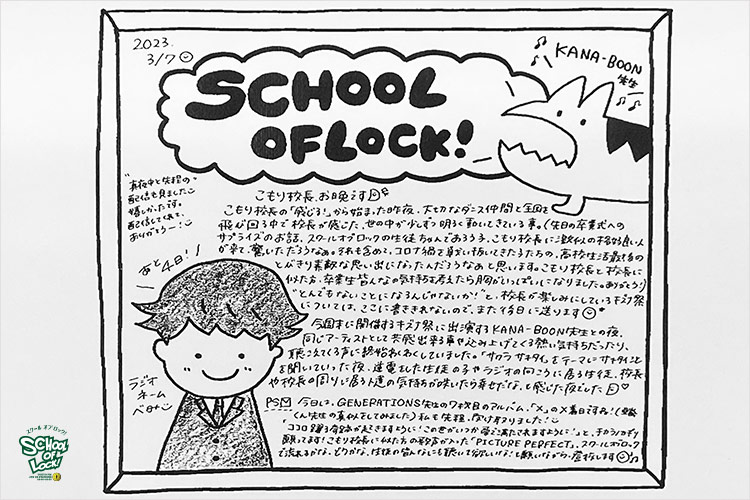 2023.
3/7
KANA-BOON
先生
SCHOOL
OF LOCK!
真夜中と失程の
配信も見ました
嬉しかったです。
配信してくれて、
ありがとうー!
こもり校長、お晩です
こもり校長の「感じる!」から始まった昨夜、大切なダンス仲間と全国を
飛び回る中で校長が感じた、世の中が少しずつ明るく動いてきている事。(先日の卒業式への
サプライズのお話、スクールオブロックの生徒ちゃんであろう子、こもり校長に激似の格好良い人
が来て、驚いただろうなぁ。それも含めて、コロナ禍を駆け抜いてきたうちらの、高校生活最後の
とびきり素敵な思い出になったんだろうなあと思います。こもり校長と校長に
似た方、卒業生皆んなの気持ちを考えたら胸がいっぱいになりました。ありがとう)
"とんでもないことになるんじゃないか!"と、校長が楽しみにしているキズナ祭
については、ここに書ききれないので、また後日に送ります
今週末に開催するキズナ祭に出演するKANA-BOON先生との夜、
同じアーティストとして共感出来る事や込み上げてくる熱い気持ちだったり、
聴こえてくる声に終始わくわくしていました。「サクラ サキタイ」をテーマに"サキタイ"こと
を聞いていった夜、逆電をした生徒の子やラジオの向こうに居る生徒、校長
や校長の周りに居る人達の気持ちが咲いたら幸せだな、と感じた夜でした
あと4日!!
ラジオ
ネーム
PS
今日は、GENERATIONS先生の7枚目のアルバム、「X」の
くん先生の真似をしてみました)私も先程、
ココロ躍る奇跡が起きますように!この世がいつか愛で満たされますように!"と、チカラノカギリ
願ってます!こもり校長に似た方の歌声が入った「PICTURE PERFECT」、スクールオブロック
で流れるかな、どうかな、生徒の皆んなにも聴いて欲しいな!と願いながら、登校します
スクール オブ ロック!
SCHOOL
OF
LOCK!